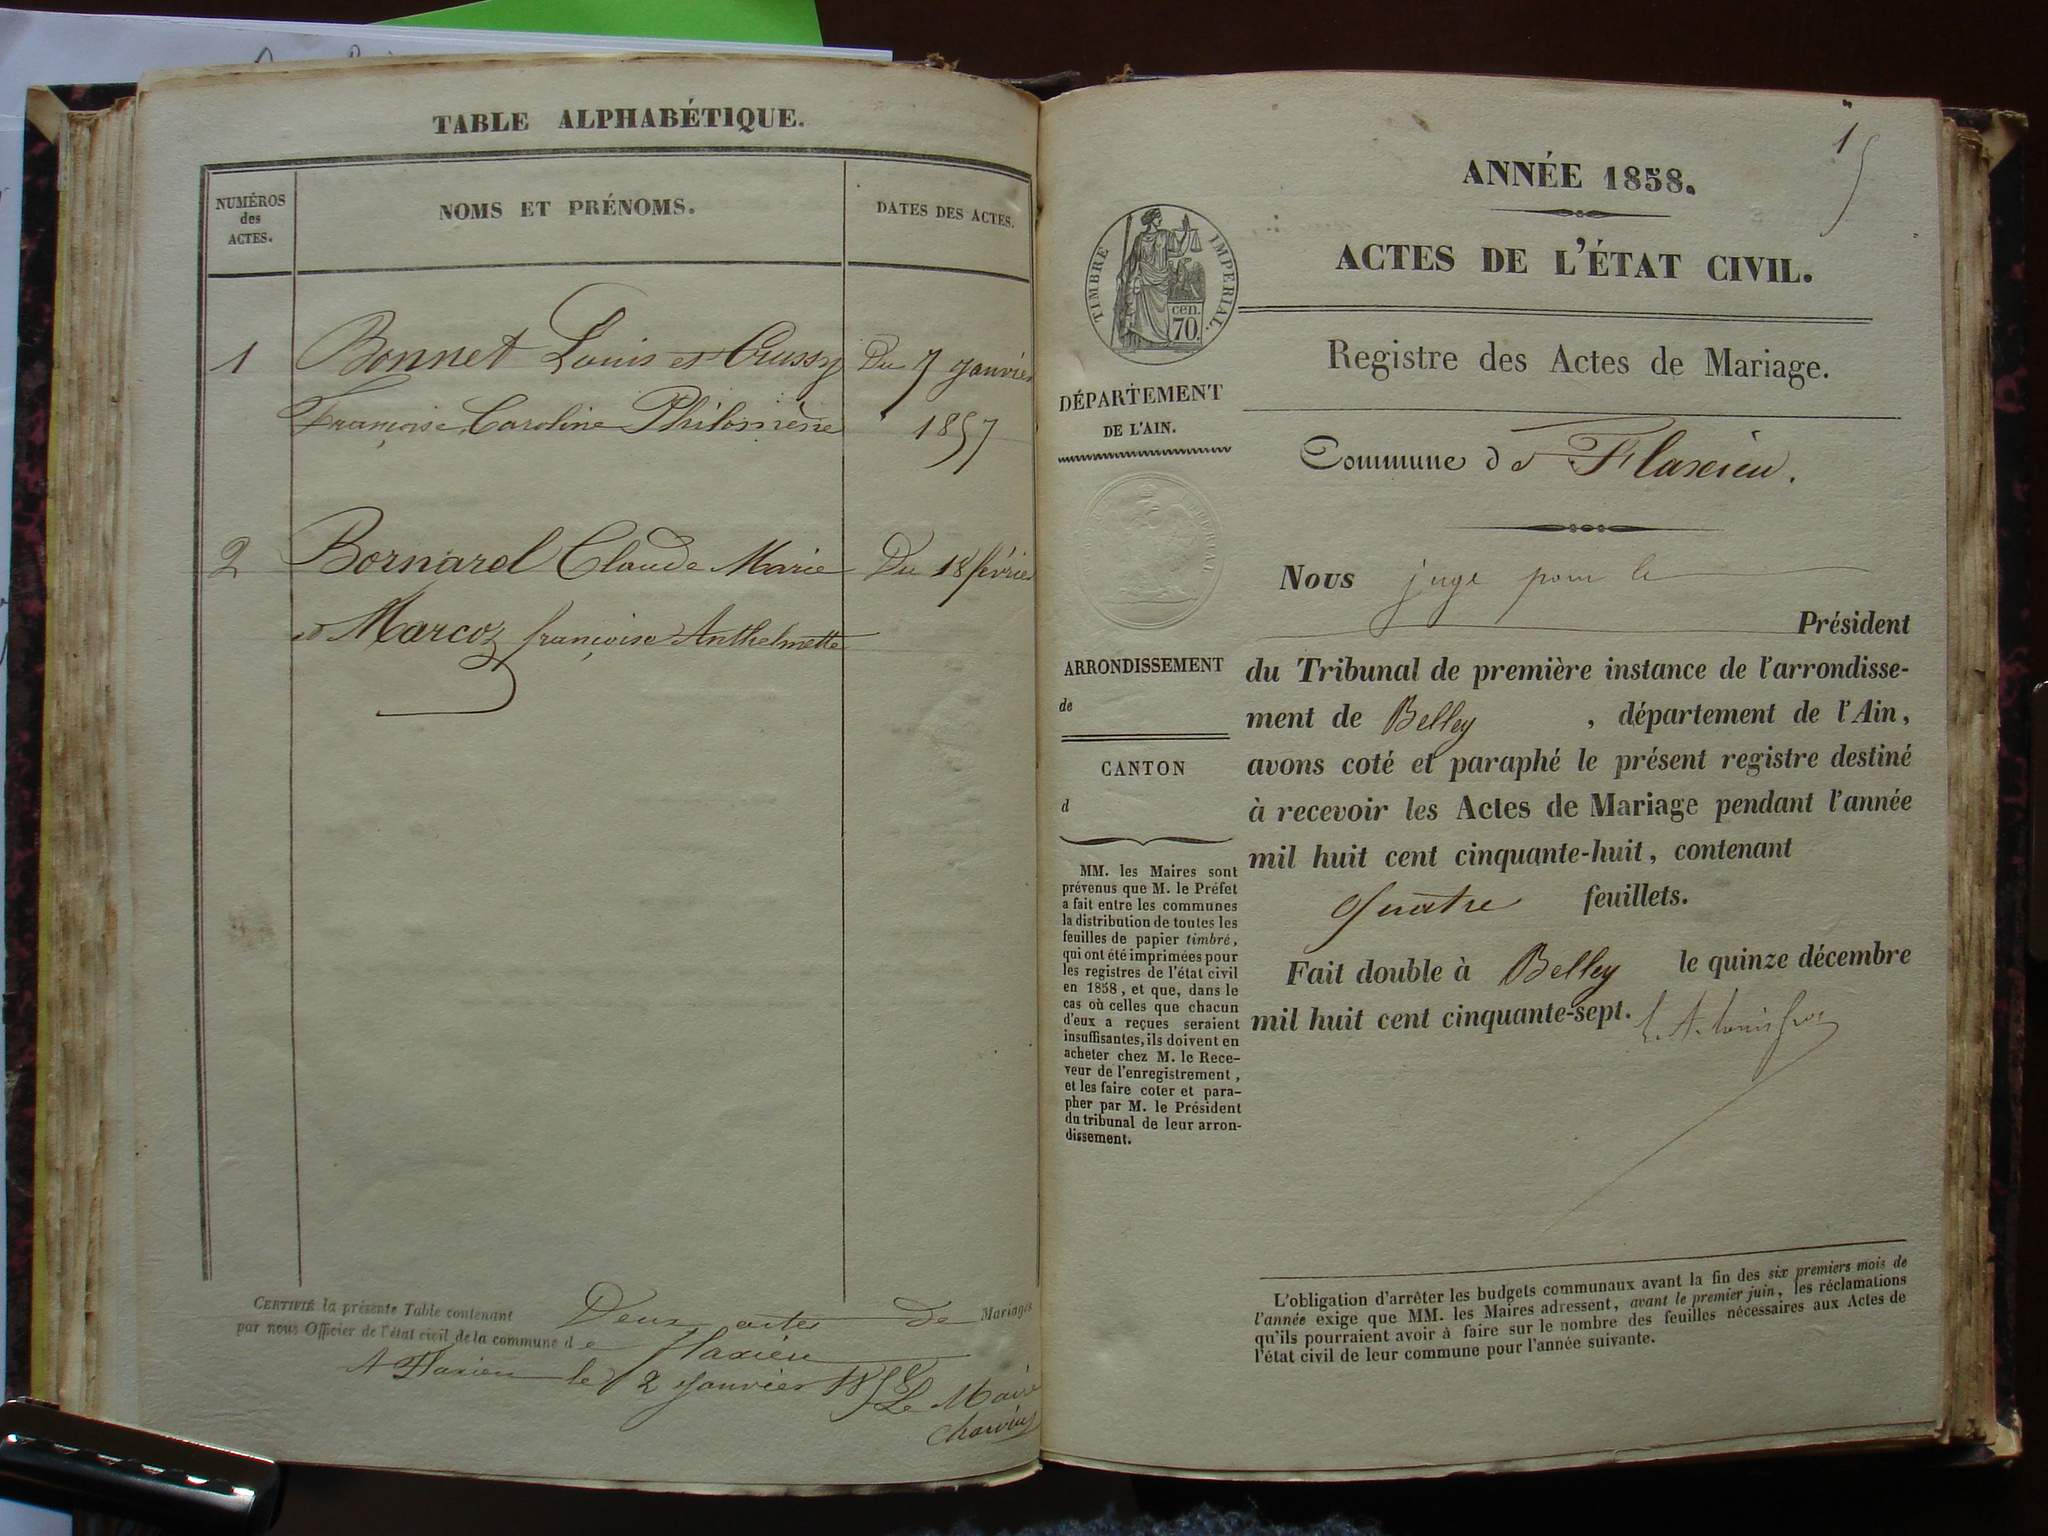 TABLE ALPHABÉTIQUE.
NUMÉROS
des
ACTES.
NOMS ET PRÉNOMS.
DATES DES ACTES.
1 Bonnet Louis et Cussy Du 7 janvier
Françoise Caroline Philomène 1857
2 Bornarel Claude Marie Du 18 février
et Marcoz françoise Anthelmette
CERTIFIÉ la présente Table contenant Deux actes de Mariages
par nous Officier de l'état civil de la commune de flaxieu
A Flaxieu le 2 janvier 1858 Le Maire
1
ANNÉE 1858.
ACTES DE L'ÉTAT CIVIL.
TIMBRE IMPÉRIAL.
cen.
70.
Registre des Actes de Mariage.
DÉPARTEMENT
DE L'AIN.
Commune de Flaxieu.
Nous juge pour le
Président
du Tribunal de première instance de l'arrondisse-
ment de Belley, département de l'Ain,
avons coté et paraphé le présent registre destiné
à recevoir les Actes de Mariage pendant l'année
mil huit cent cinquante-huit, contenant
quatre feuillets.
Fait double à Belley le quinze décembre
mil huit cent cinquante-sept.
ARRONDISSEMENT
de
CANTON
d
MM. les Maires sont
prévenus que M. le Préfet
a fait entre les communes
la distribution de toutes les
feuilles de papier timbré,
qui ont été imprimées pour
les registres de l'état civil
en 1858, et que, dans le
cas où celles que chacun
d'eux a reçues seraient
insuffisantes, ils doivent en
acheter chez M. le Rece-
veur de l'enregistrement,
et les faire coter et para-
pher par M. le Président
du tribunal de leur arron-
dissement.
L'obligation d'arrêter les budgets communaux avant la fin des six premiers mois de
l'année exige que MM. les Maires adressent, avant le premier juin, les réclamations
qu'ils pourraient avoir à faire sur le nombre des feuilles nécessaires aux Actes de
l'état civil de leur commune pour l'année suivante.